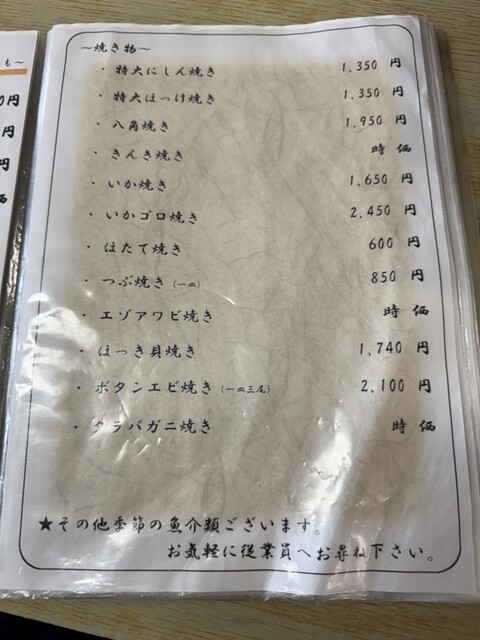 も～
0円
円
円
価
～焼き物～
・特大にしん焼き 1,350 円
・特大ほっけ焼き 1,350 円
・八角焼き 1,950 円
・きんき焼き 時価
・いか焼き 1,650 円
・いかゴロ焼き 2,450 円
・ほたて焼き 600 円
・つぶ焼き（一皿） 850 円
・エゾアワビ焼き 時価
・ほっき貝焼き 1,740 円
・ボタンエビ焼き（一皿三尾） 2,100 円
・タラバガニ焼き 時価
★その他季節の魚介類ございます。
お気軽に従業員へお尋ね下さい。